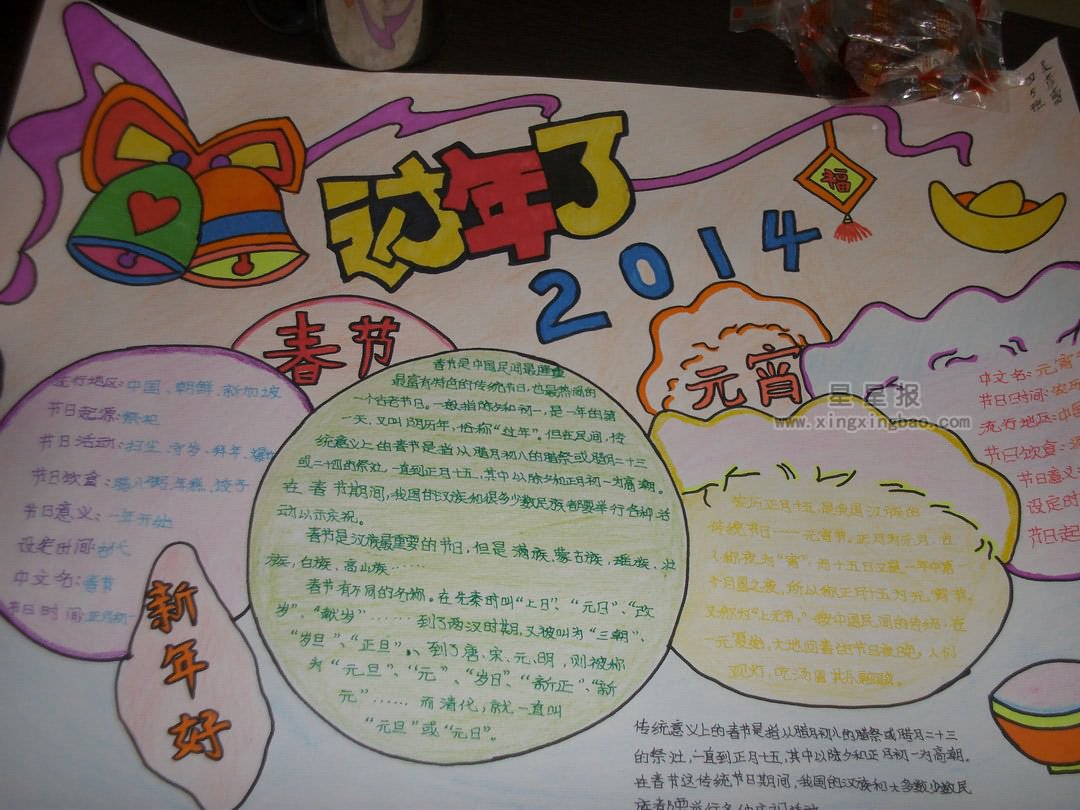 过年了
2014
福
春节
元宵
星星报
www.xingxingbao.com
流行地区:中国、朝鲜、新加坡
节日起源:祭祀
节日活动:扫尘、守岁、拜年、爆竹
节日饮食:腊八粥、年糕、饺子
节日意义:一年开始
设定时间:古代
中文名:春节
节日时间:正月初一
新年好
春节是中国民间最隆重
最富有特色的传统节日,也最热闹的
一个古老节日。一般指除夕和初一,是一年的第
一天,又叫阴历年,俗称“过年”。但在民间,传
统意义上的春节是指从腊月初八的腊祭或腊月二十三
或二十四的祭灶,一直到正月十五,其中以除夕和正月初一为高潮。
在春节期间,我国的汉族和很多少数民族都要举行各种活
动以示庆祝。
春节是汉族最重要的节日,但是满族、蒙古族、瑶族、壮
族、白族、高山族……
春节有不同的名称。在先秦时叫“上日”、“元日”、“改
岁”、“献岁”……到了两汉时期,又被叫为“三朝”、
“岁旦”、“正日”、到了唐、宋、元、明,则被称
为“元旦”、“元”、“岁日”、“新正”、“新
元”……而清代,就一直叫
“元旦”或“元日”。
农历正月十五,是我国汉族的
传统节日——元宵节。正月为元月,古
人称夜为“宵”,而十五日又是一年中第一
个月圆之夜,所以称正月十五为元宵节。
又称为“上元节”。按中国民间的传统,在
一元复始,大地回春的节日夜晚,人们
观灯、吃汤圆其乐融融。
中文名:元宵
节日时间:农历
流行地区:中国
节日饮食:汤
节日意义
设定时
节日起
传统意义上的春节是指从腊月初八的腊祭或腊月二十三
的祭灶,一直到正月十五,其中以除夕和正月初一为高潮。
在春节这传统节日期间,我国的汉族和大多数少数民
族都要举行各种庆祝活动